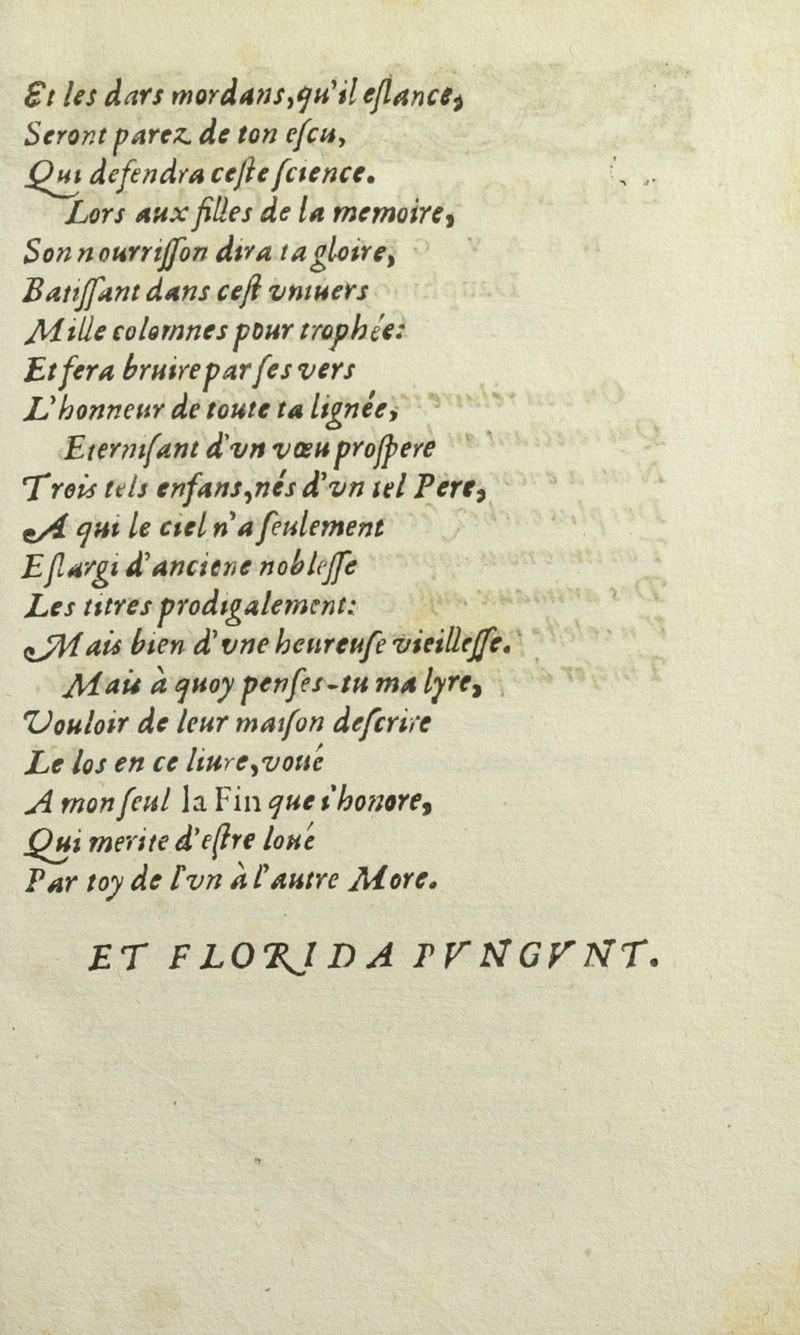 Et les dars mordans,qu'il eſlance,
Seront parez de ton eſcu,
Qui defendra ceſte ſcience.
Lors aux filles de la memoire,
Son nourriſſon dira ta gloire,
Batiſſant dans ceſt vniuers
Mille colomnes pour trophée:
Et fera bruire par ſes vers
L'honneur de toute ta lignée,
Eterniſant d'vn vœu proſpere
Trois tels enfans,nés d'vn tel Pere,
A qui le ciel n'a ſeulement
Eſlargi d'anciene nobleſſe
Les titres prodigalement:
Mais bien d'vne heureuſe vieilleſſe.
Mais à quoy penſes-tu ma lyre,
Vouloir de leur maiſon deſcrire
Le los en ce liure,voué
A mon ſeul la Fin que i'honore,
Qui merite d'eſtre loué
Par toy de l'vn à l'autre More.
ET FLORIDA PVNGVNT.